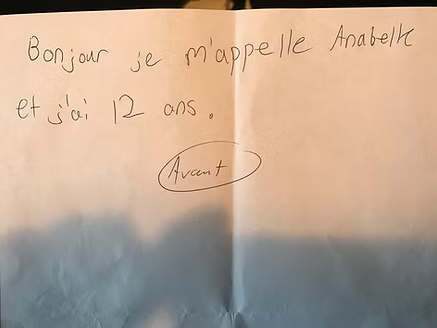 Bonjour je m'appelle Anabelle
et j'ai 12 ans.
Avant